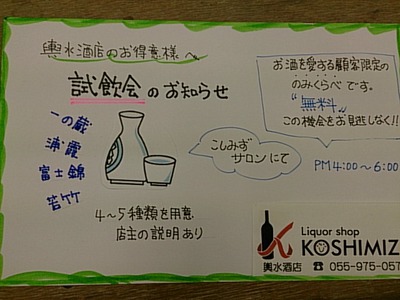 輿水酒店のお得意様へ
試飲会のお知らせ
お酒を愛する顧客限定の
のみくらべです。
"無料"
この機会をお見逃しなく!!
一の蔵
浦霞
富士錦
若竹
こしみず
サロンにて
PM4:00〜6:00
4〜5種類を用意
店主の説明あり
Liquor shop
KOSHIMIZ
輿水酒店 ☎ 055-975-057